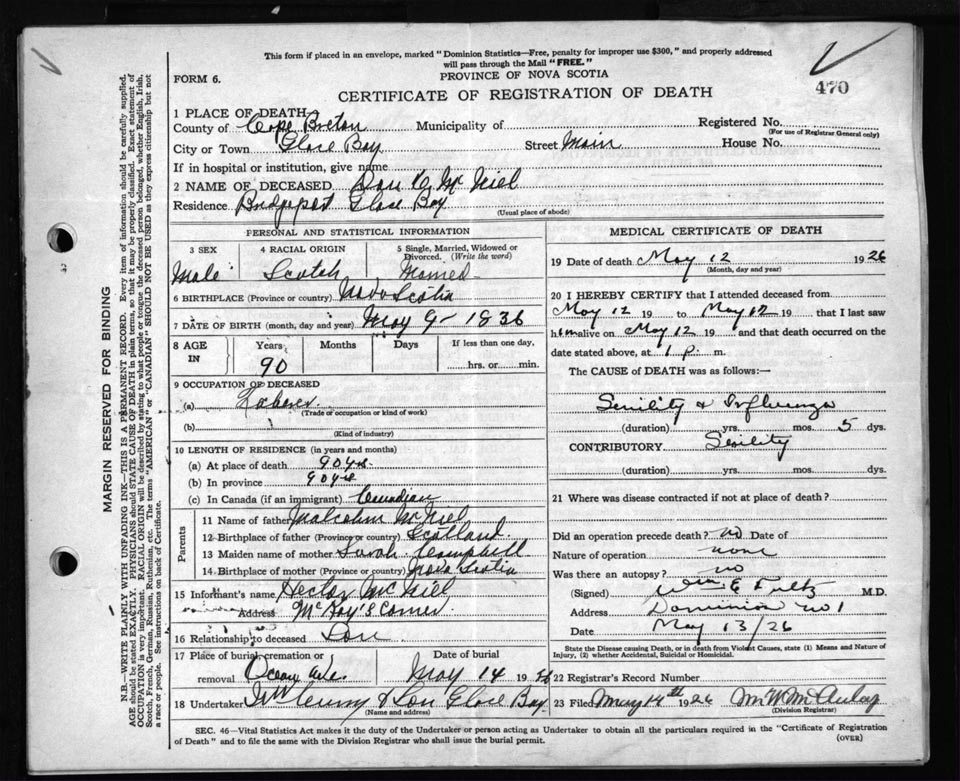 This form if placed in an envelope, marked "Dominion Statistics—Free, penalty for improper use $300," and properly addressed
will pass through the Mail "FREE."
FORM 6.
PROVINCE OF NOVA SCOTIA
CERTIFICATE OF REGISTRATION OF DEATH
470
1 PLACE OF DEATH
County of Cape Breton Municipality of Registered No.
(For use of Registrar General only)
City or Town Glace Bay Street Main House No.
If in hospital or institution, give name
2 NAME OF DECEASED Dan Mc Niel
Residence Bridgeport Glace Bay
(Usual place of abode)
PERSONAL AND STATISTICAL INFORMATION
3 SEX 4 RACIAL ORIGIN 5 Single, Married, Widowed or Divorced. (Write the word)
Male Scotch Married
6 BIRTHPLACE (Province or country) Nova Scotia
7 DATE OF BIRTH (month, day and year) May 9 - 1836
8 AGE IN Years Months Days If less than one day,
90 hrs. or min.
9 OCCUPATION OF DECEASED
(a) Laborer
(Trade or occupation or kind of work)
(b)
(Kind of industry)
10 LENGTH OF RESIDENCE (in years and months)
(a) At place of death 90 yrs.
(b) In province 90 yrs
(c) In Canada (if an immigrant) Canadian
Parents
11 Name of father Malcolm McNiel
12 Birthplace of father (Province or country) Scotland
13 Maiden name of mother Sarah Campbell
14 Birthplace of mother (Province or country) Nova Scotia
15 Informant's name Hector McNiel
Address McKay's Corner.
16 Relationship to deceased Son
17 Place of burial, cremation or Date of burial
removal May 14 19 26
18 Undertaker & Son Glace Bay
(Name and address)
MEDICAL CERTIFICATE OF DEATH
19 Date of death May 12 1926
(Month, day and year)
20 I HEREBY CERTIFY that I attended deceased from
May 12 19 to May 12 19 that I last saw
him alive on May 12 19 and that death occurred on
date stated above, at 1 p. m.
The CAUSE of DEATH was as follows:—
Senility & Influenza
(duration) yrs. mos. 5 dys.
CONTRIBUTORY Senility
(duration) yrs. mos. dys.
21 Where was disease contracted if not at place of death?
Did an operation precede death? no Date of
Nature of operation none
Was there an autopsy? no
(Signed) Wm E Fultz M.D.
Address Dominion No 1
Date May 13/26
State the Disease causing Death, or in death from Violent Causes, state (1) Means and Nature of
Injury, (2) whether Accidental, Suicidal or Homicidal.
22 Registrar's Record Number
23 Filed May 14th 1926 M. W. McAulay
(Division Registrar)
SEC. 46—Vital Statistics Act makes it the duty of the Undertaker or person acting as Undertaker to obtain all the particulars required in the "Certificate of Registration
of Death" and to file the same with the Division Registrar who shall issue the burial permit.
(OVER)
MARGIN RESERVED FOR BINDING
N.B.—WRITE PLAINLY WITH UNFADING INK—THIS IS A PERMANENT RECORD. Every item of information should be carefully supplied.
AGE should be stated EXACTLY. PHYSICIANS should STATE CAUSE OF DEATH in plain terms, so that it may be properly classified. Exact statement of
OCCUPATION is very important. RACIAL ORIGIN will be described by stating to what people or tongue the deceased person belonged, whether English, Irish,
Scotch, French, German, Russian, Ruthenian, etc. The terms "AMERICAN" or "CANADIAN" SHOULD NOT BE USED as they express citizenship but not
a race or people. See instructions on back of Certificate.